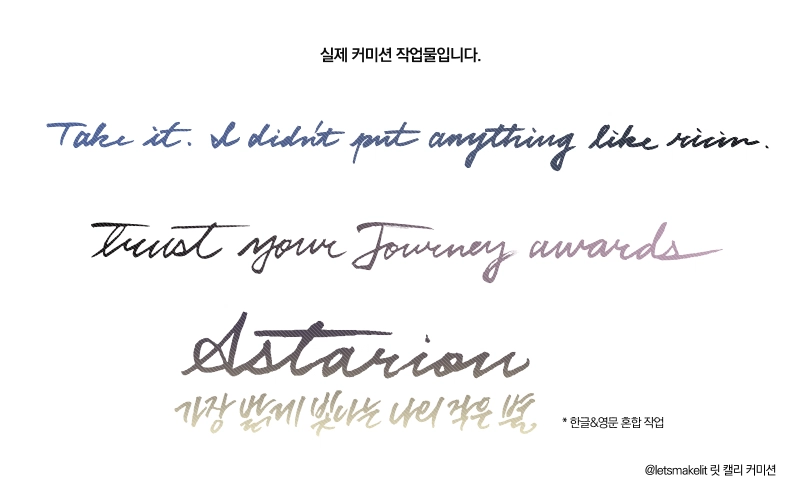 실제 커미션 작업물입니다.
Take it. I didn't put anything like ricin.
Trust your Journey awards
Astarion
가장 밝게 빛나는 나의 작은 별
* 한글&영문 혼합 작업
@letsmakelit 릿 캘리 커미션